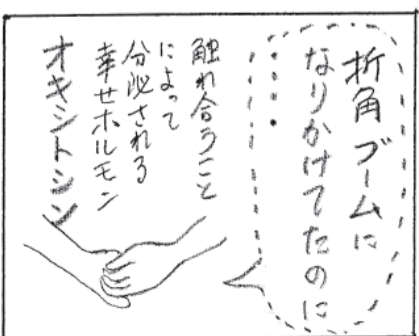 折角ブームに
なりかけてたのに
・・・・
触れ合うこと
によって
分泌される
幸せホルモン
オキシトシン